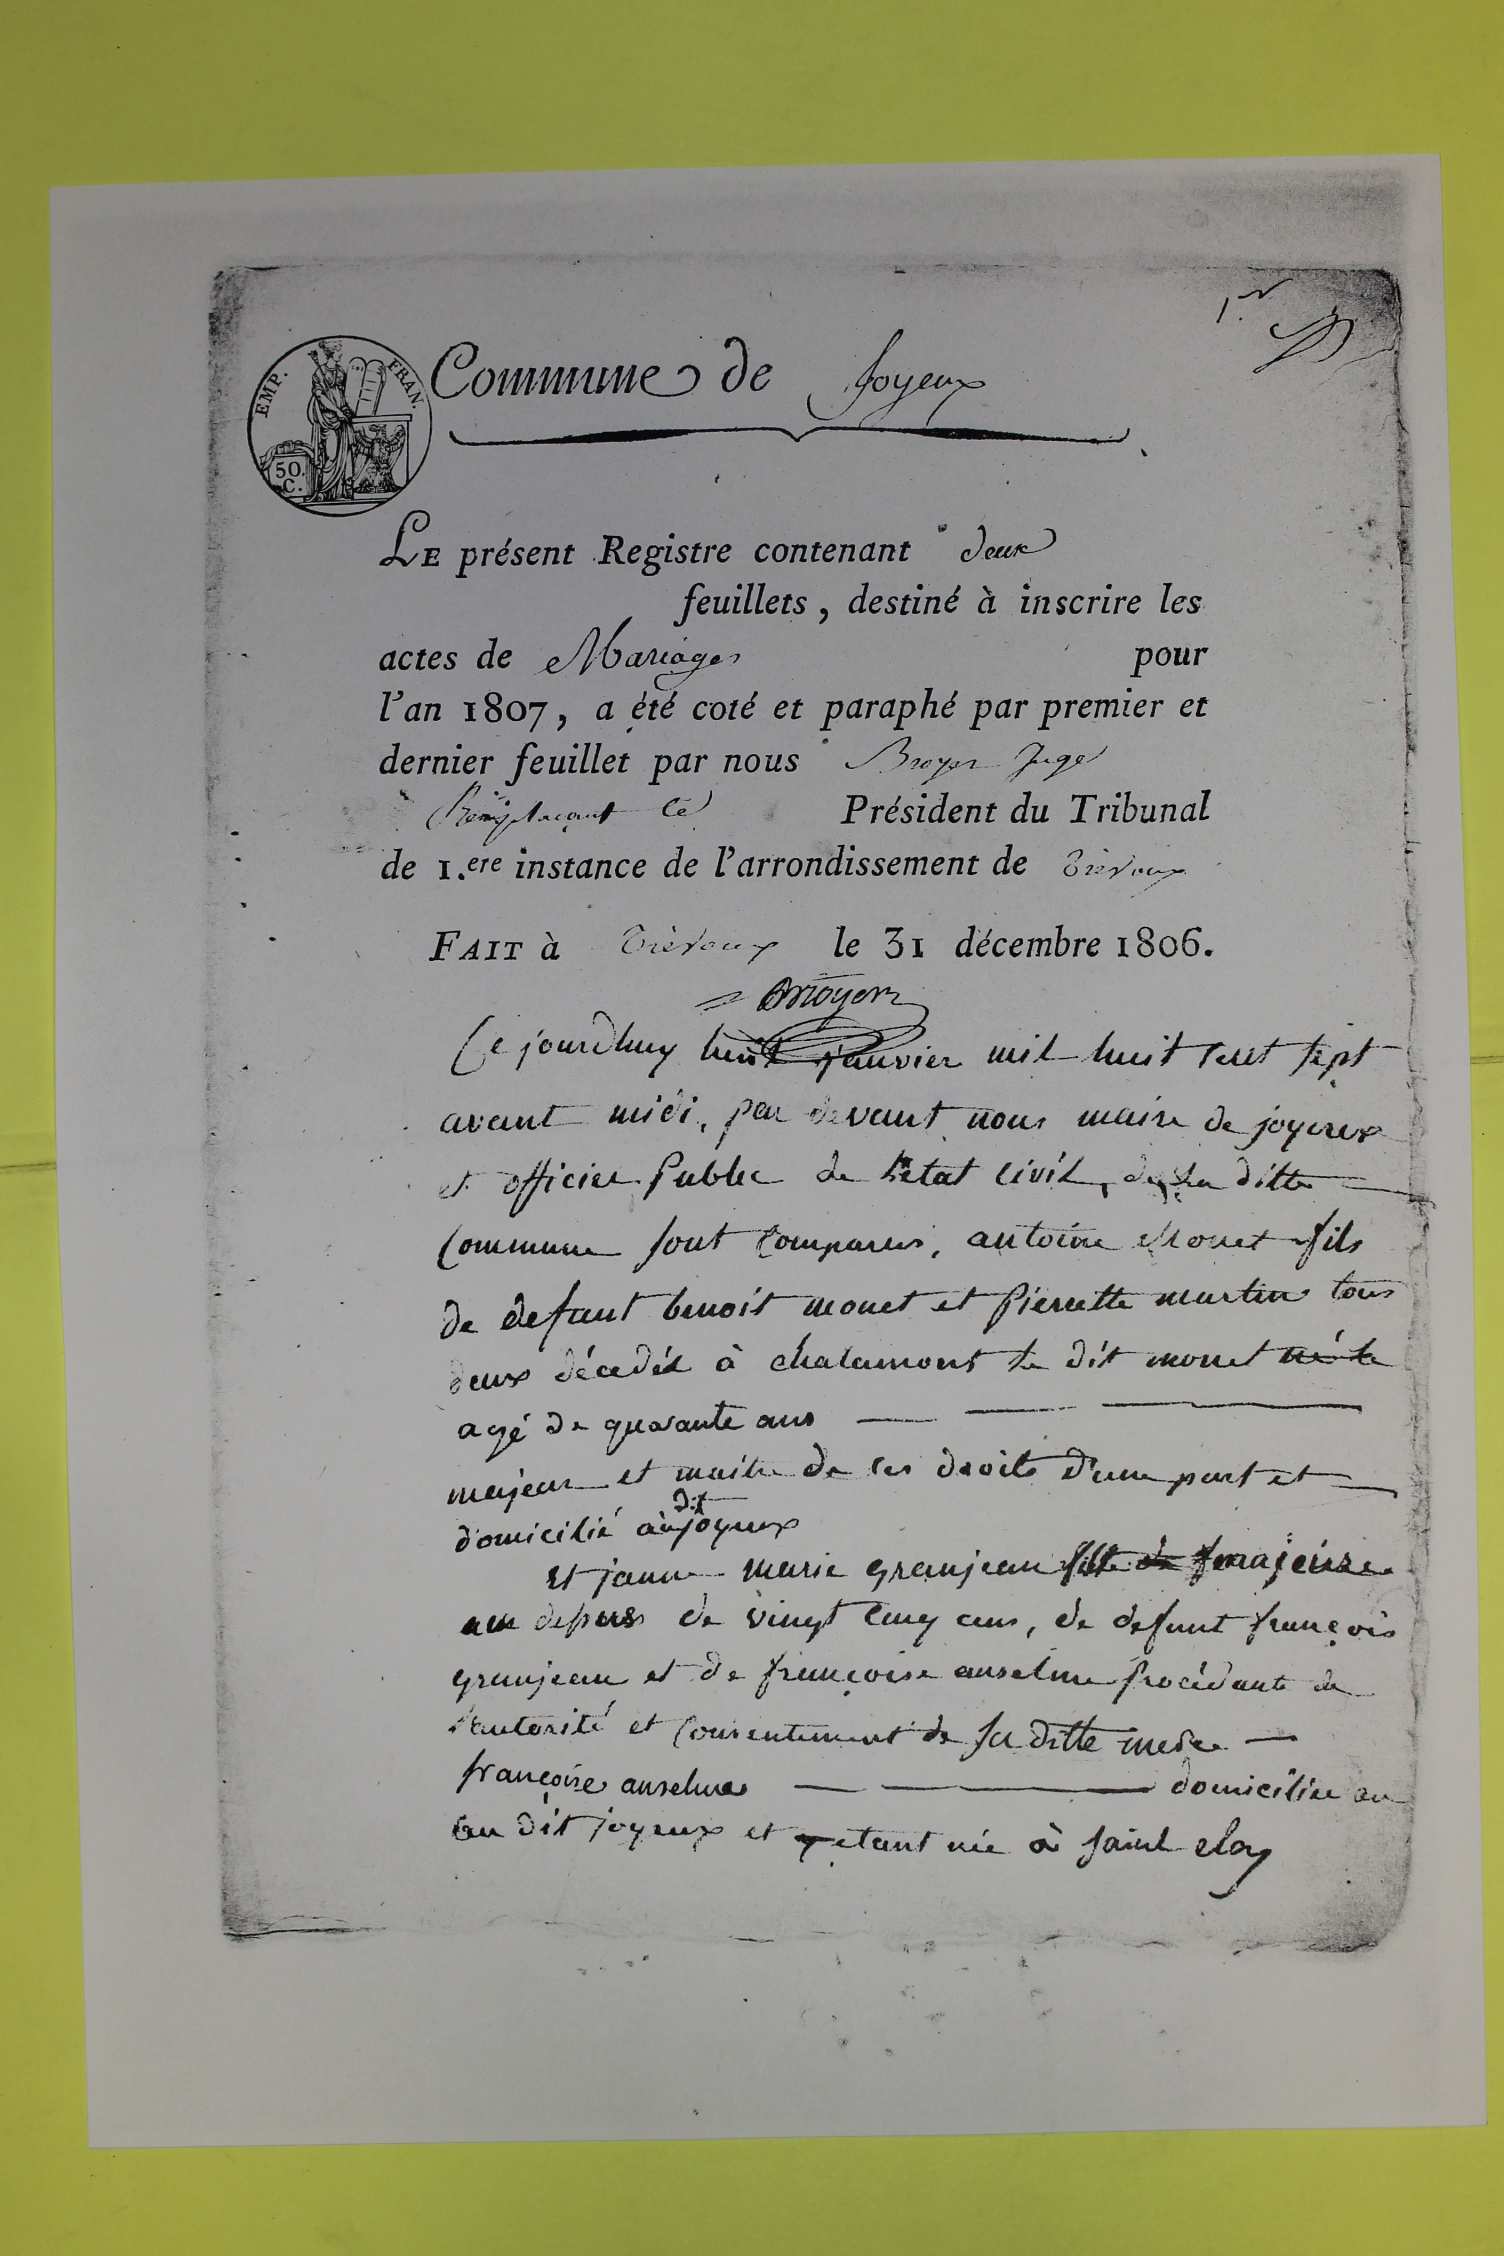 1.er
EMP. FRAN.
50.
C.
Commune de Joyeux
LE présent Registre contenant deux
feuillets, destiné à inscrire les
actes de Mariages pour
l'an 1807, a été coté et paraphé par premier et
dernier feuillet par nous Broyer Juge
Remplaçant le Président du Tribunal
de 1.ere instance de l'arrondissement de Trévoux
FAIT à Trévoux le 31 décembre 1806.
Broyer
Ce jourdhuy huit janvier mil huit cent sept
avant midi, par devant nous maire de joyeux
et officier public de l'etat civil, de la ditte
commune sont comparus, antoine Monet fils
de defunt benoit monet et pierrette martin tous
deux décedés à chalamont le dit monet né le
agé de quarante ans
majeur et maitre de ses droits d'une part et
domicilié audit joyeux
et janne marie granjean fille de majeure
au depuis de vingt cinq ans, de defunt françois
granjean et de françoise anselme procédante de
l'autorité et consentement de sa ditte mere
françoise anselme domiciliée au
au dit joyeux et y etant née à saint eloy